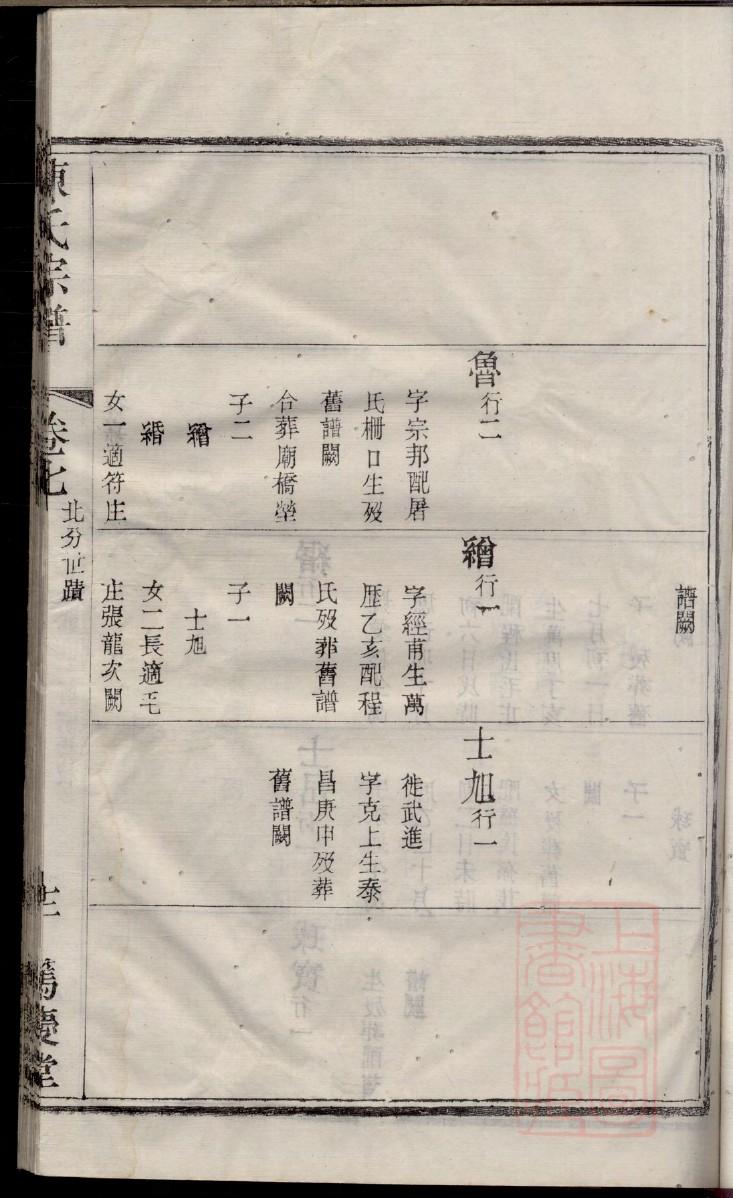 譜闕
魯行二
字宗邦配屠
氏柵口生歿
舊譜闕
合葬廟橋塋
子二
繒
緍
女一適符庄
繒行一
字經甫生萬
歷乙亥配程
氏歿葬舊譜
闕
子一
士旭
女二長適毛
庄張龍次闕
士旭行一
徙武進
字克上生泰
昌庚申歿葬
舊譜闕
陳氏宗譜
卷七
北分世蹟
篤慶堂
上海圖
書館藏